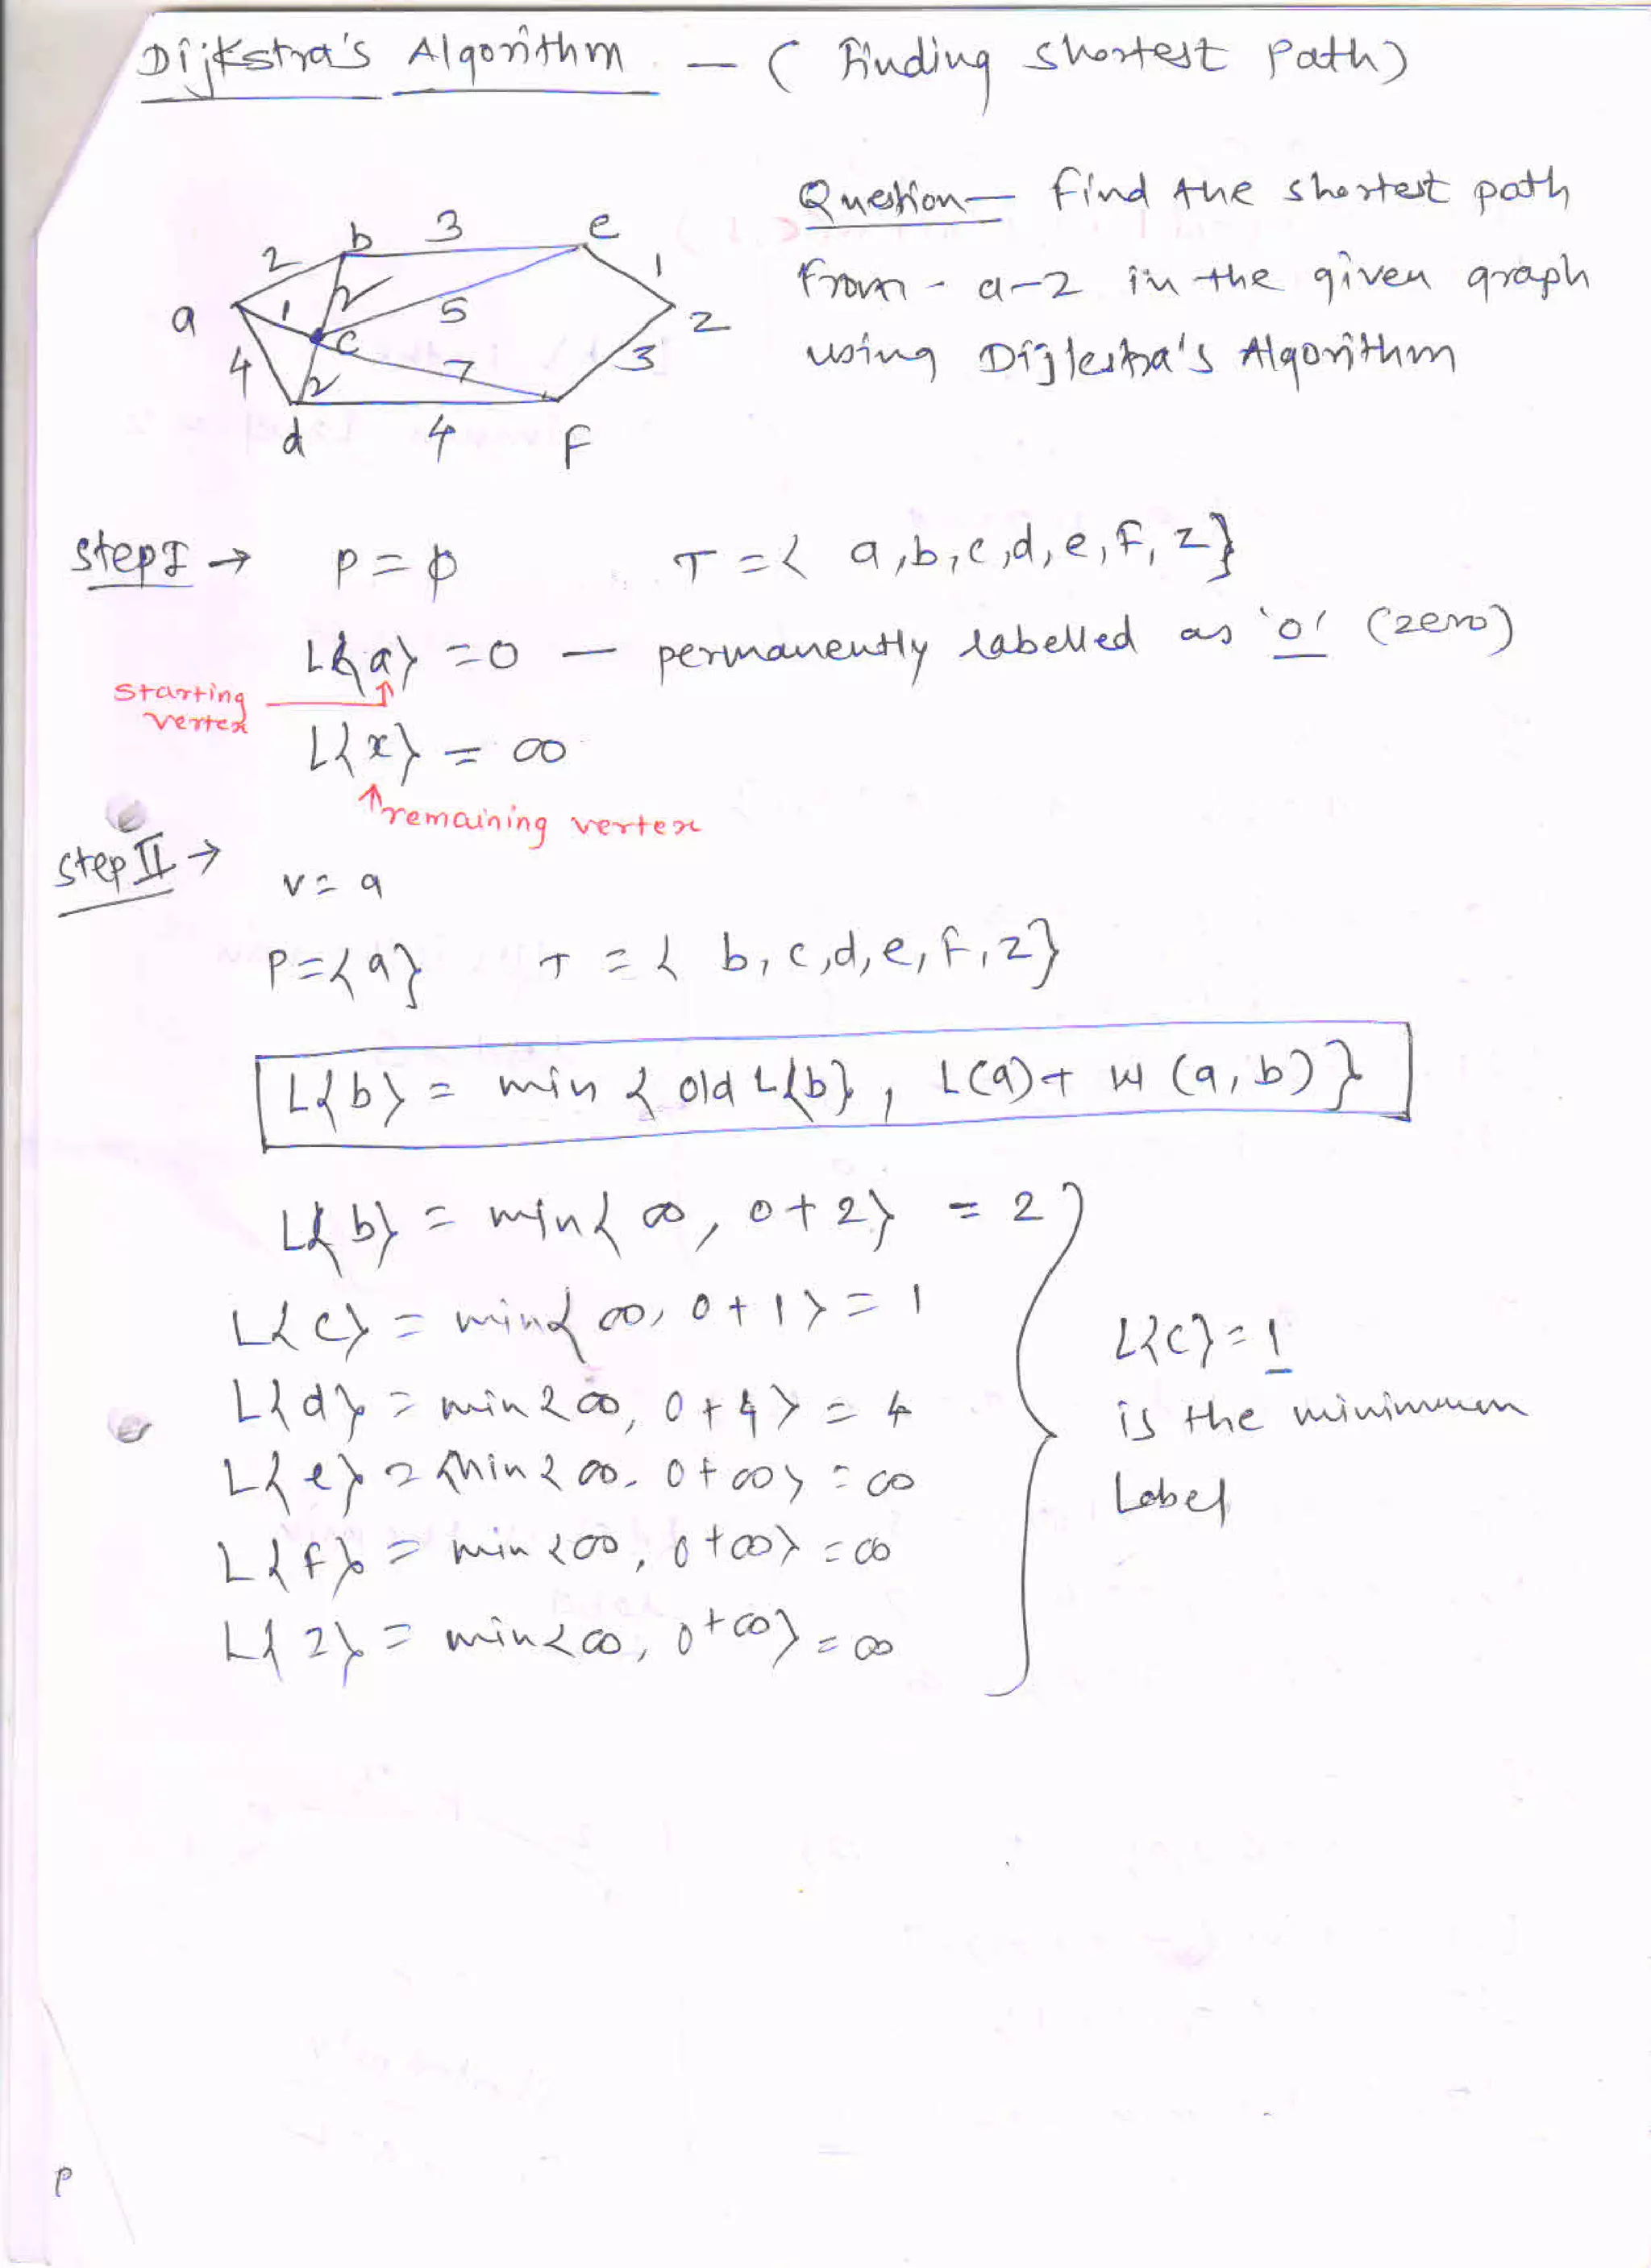 Dijkstra's Algorithm - (Finding shortest Path)
Question- find the shortest path
from - a-z in the given graph
using Dijkstra's Algorithm
b 3 e
2 1
2
a 1 5 z
c
4 7 3
2
d 4 F
Step I → P = ϕ T = { a,b,c,d,e,F,z}
L{a} = 0 - permanently labelled as 'o' (zero)
starting
vertex
L{x} = ∞
↑ remaining vertex
Step II → v = a
P = {a} T = { b,c,d,e,F,z}
L{b} = min { old L{b}, L(a) + W (a,b)}
L{b} = min{ ∞, 0+2} = 2
L{c} = min{ ∞, 0+1} = 1
L{d} = min{∞, 0+4} = 4
L{e} = min{∞, 0+∞} = ∞
L{f} = min{∞, 0+∞} = ∞
L{z} = min{∞, 0+∞} = ∞
L{c} = 1
is the minimum
Label
P